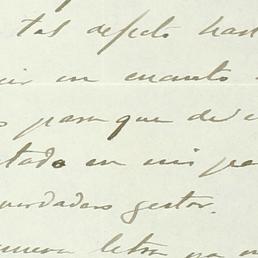 tal defecto has
ir en cuanto
para que de
tado en mi pe
verdadero gestor.
letra